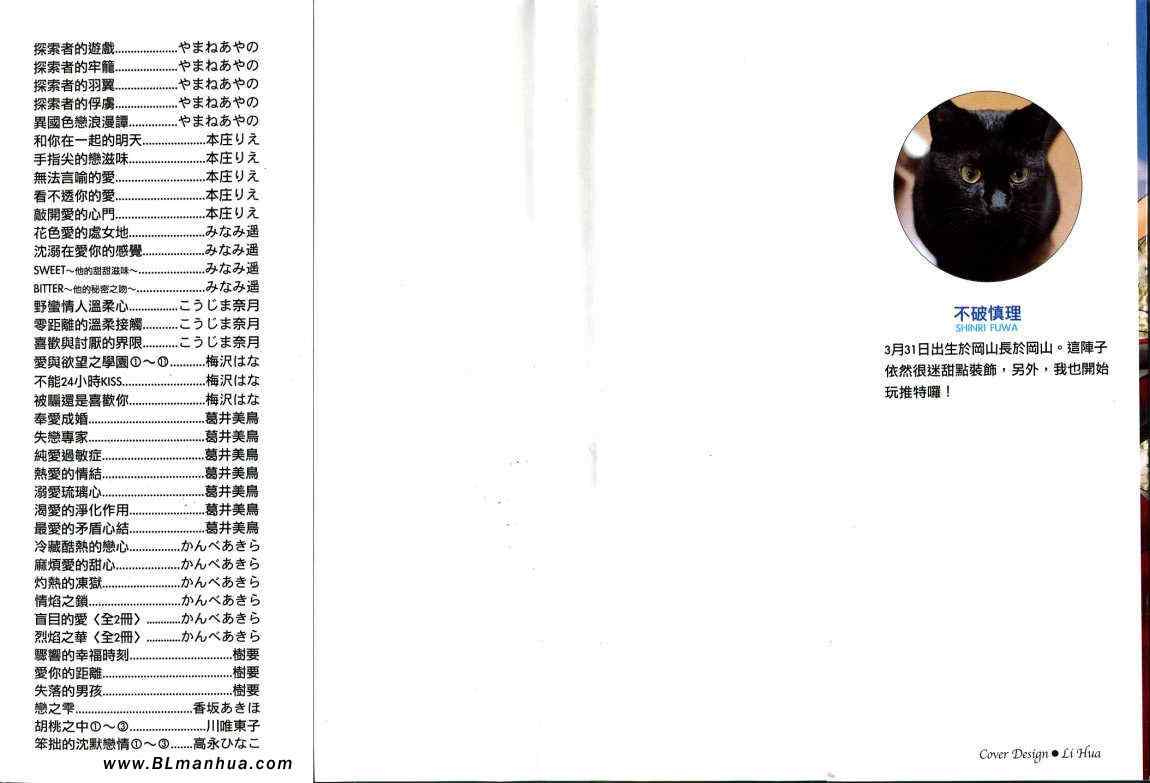 探索者的遊戲....................やまねあやの
探索者的牢籠....................やまねあやの
探索者的羽翼....................やまねあやの
探索者的俘虜....................やまねあやの
異國色戀浪漫譚................やまねあやの
和你在一起的明天....................本庄りえ
手指尖的戀滋味........................本庄りえ
無法言喻的愛............................本庄りえ
看不透你的愛............................本庄りえ
敲開愛的心門............................本庄りえ
花色愛的處女地........................みなみ遥
沈溺在愛你的感覺....................みなみ遥
SWEET～他的甜甜滋味～.....................みなみ遥
BITTER～他的秘密之吻～......................みなみ遥
野蠻情人溫柔心................こうじま奈月
零距離的溫柔接觸...........こうじま奈月
喜歡與討厭的界限...........こうじま奈月
愛與欲望之學園①～⑰...........梅沢はな
不能24小時KISS..........................梅沢はな
被騙還是喜歡你........................梅沢はな
奉愛成婚.....................................葛井美鳥
失戀專家.....................................葛井美鳥
純愛過敏症................................葛井美鳥
熱愛的情結................................葛井美鳥
溺愛琉璃心................................葛井美鳥
渴愛的淨化作用........................葛井美鳥
最愛的矛盾心結........................葛井美鳥
冷藏酷熱的戀心................かんべあきら
麻煩愛的甜心....................かんべあきら
灼熱的凍獄.........................かんべあきら
情焰之鎖.............................かんべあきら
盲目的愛〈全2冊〉...........かんべあきら
烈焰之華〈全2冊〉...........かんべあきら
驟響的幸福時刻.................................樹要
愛你的距離.........................................樹要
失落的男孩.........................................樹要
戀之雫.....................................香坂あきほ
胡桃之中①～③........................川唯東子
笨拙的沈默戀情①～③.......高永ひなこ
www.BLmanhua.com
不破慎理
SHINRI FUWA
3月31日出生於岡山長於岡山。這陣子
依然很迷甜點裝飾，另外，我也開始
玩推特囉！
Cover Design ● Li Hua